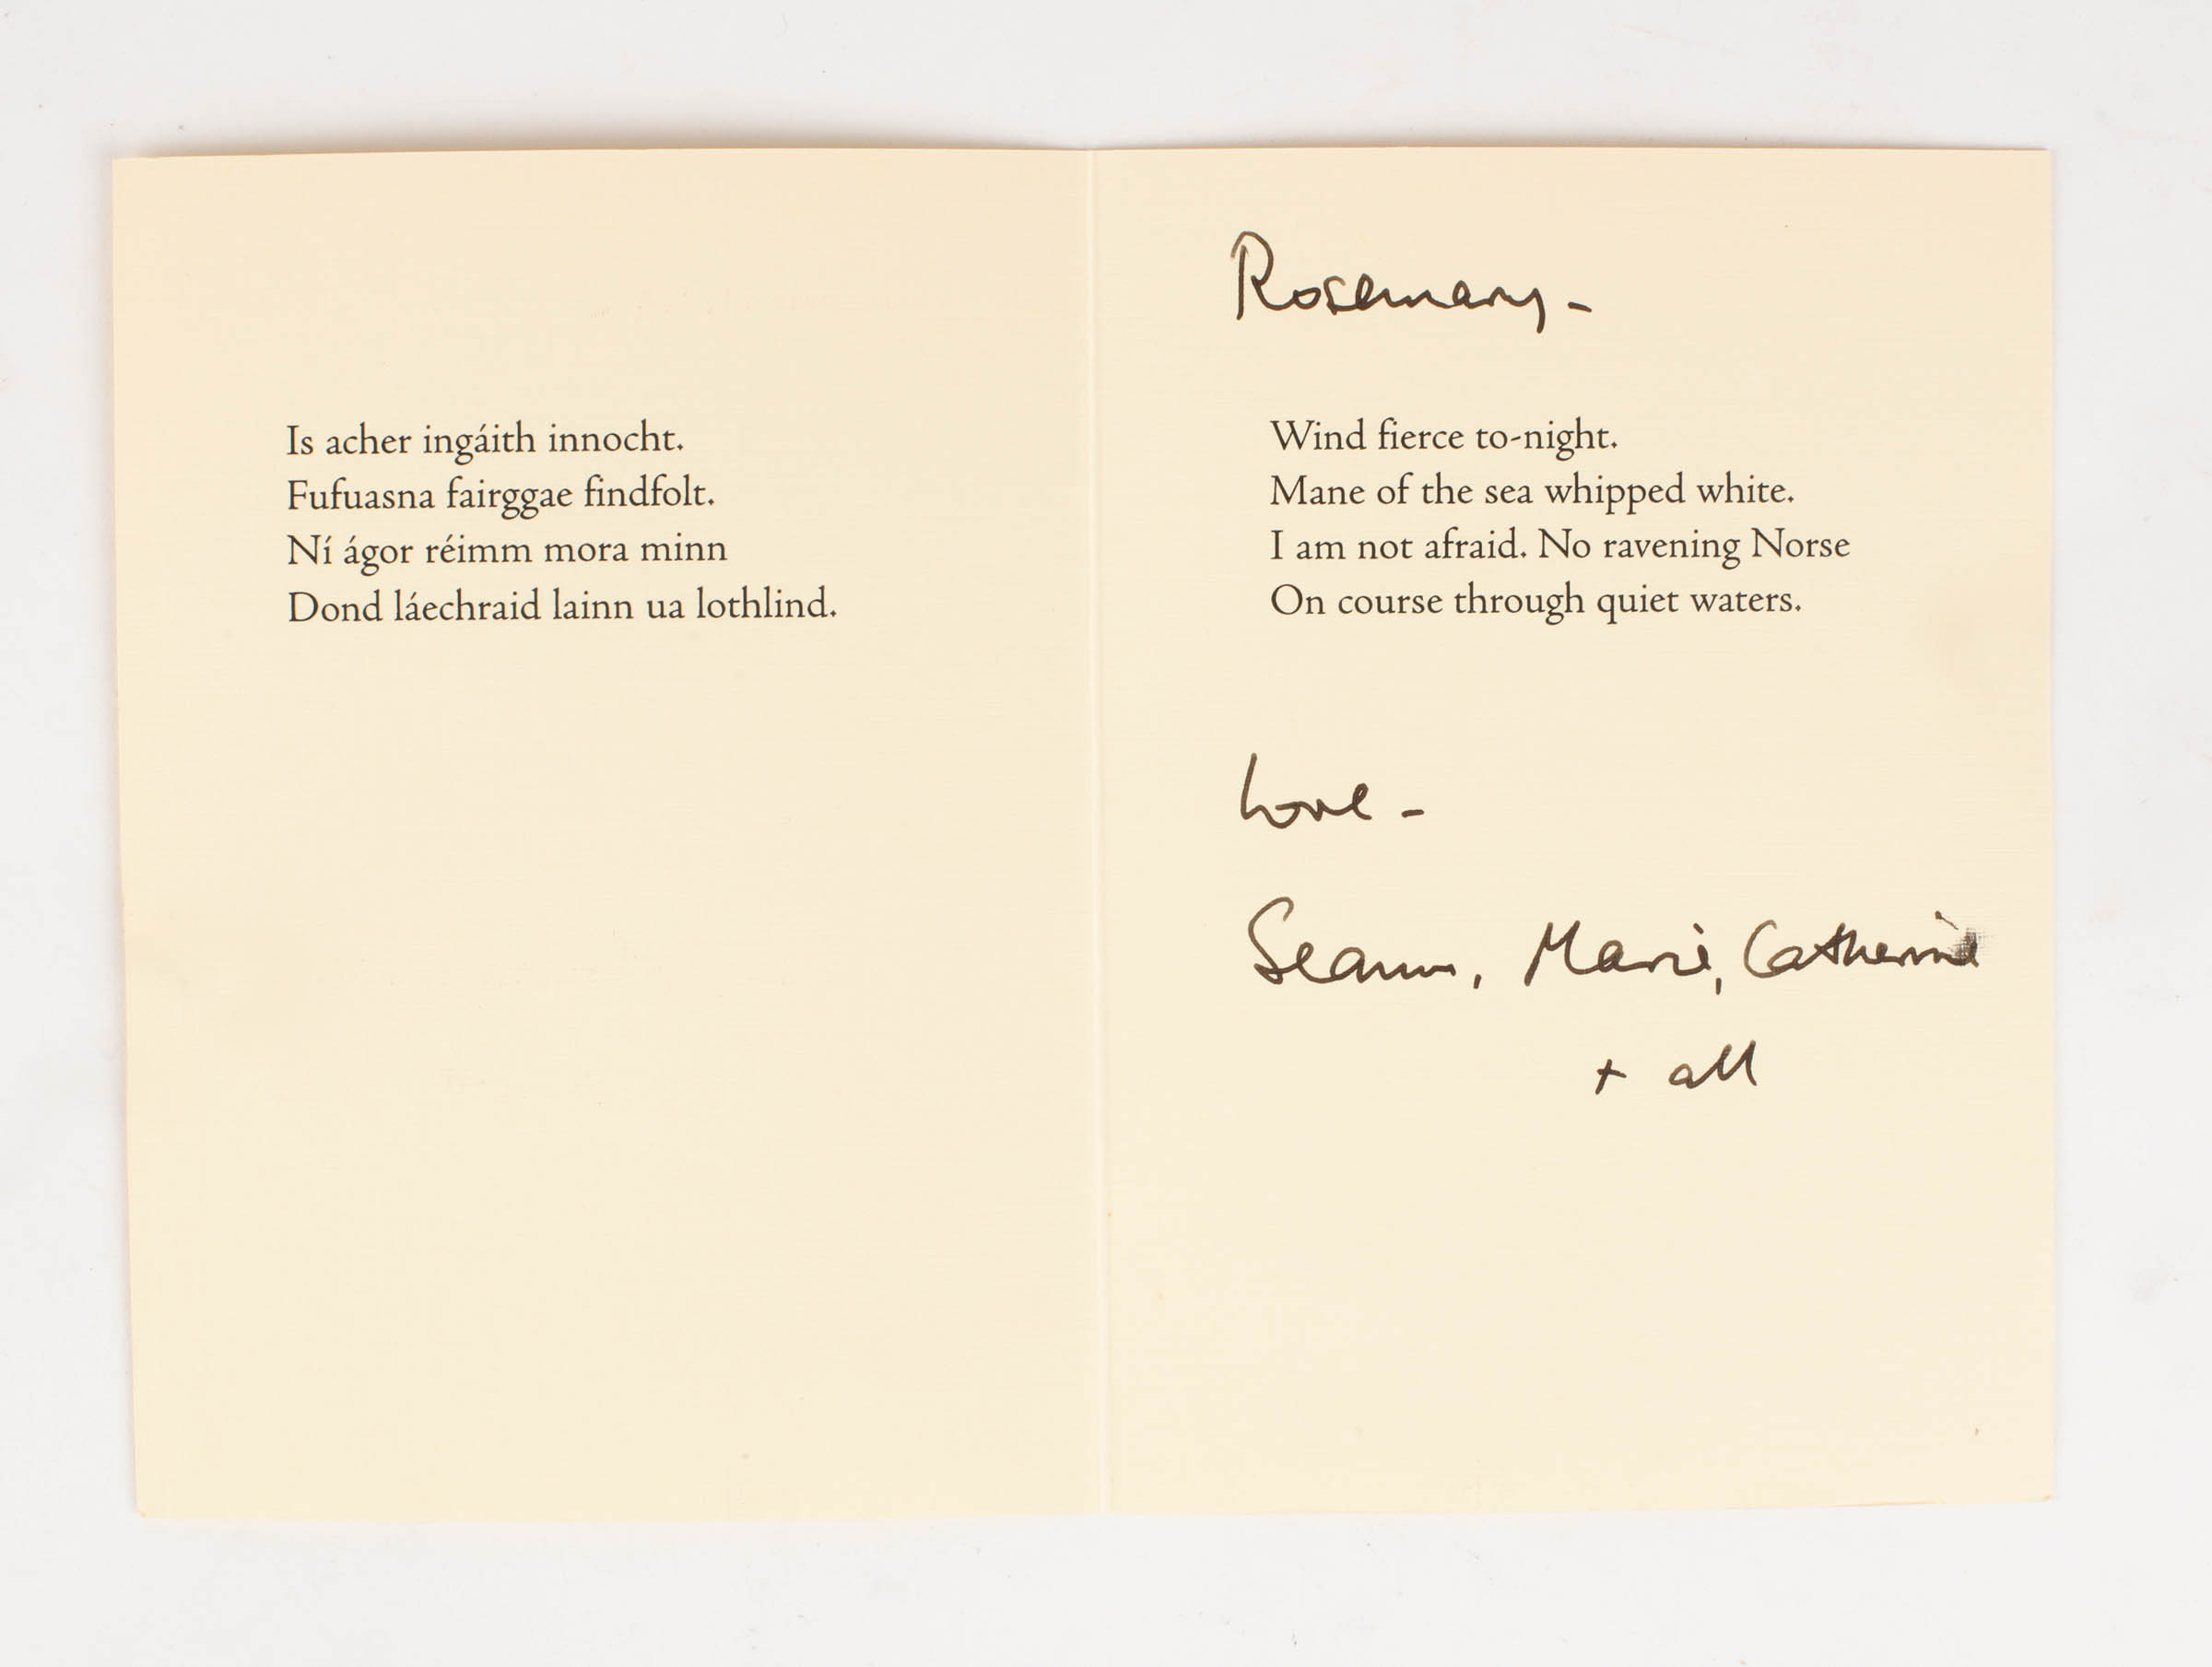 Is acher ingáith innocht.
Fufuasna fairggae findfolt.
Ní ágor réimm mora minn
Dond láechraid lainn ua lothlind.
Rosemary -
Wind fierce to-night.
Mane of the sea whipped white.
I am not afraid. No ravening Norse
On course through quiet waters.
Love -
Seamus, Marie, Catherine
+ all